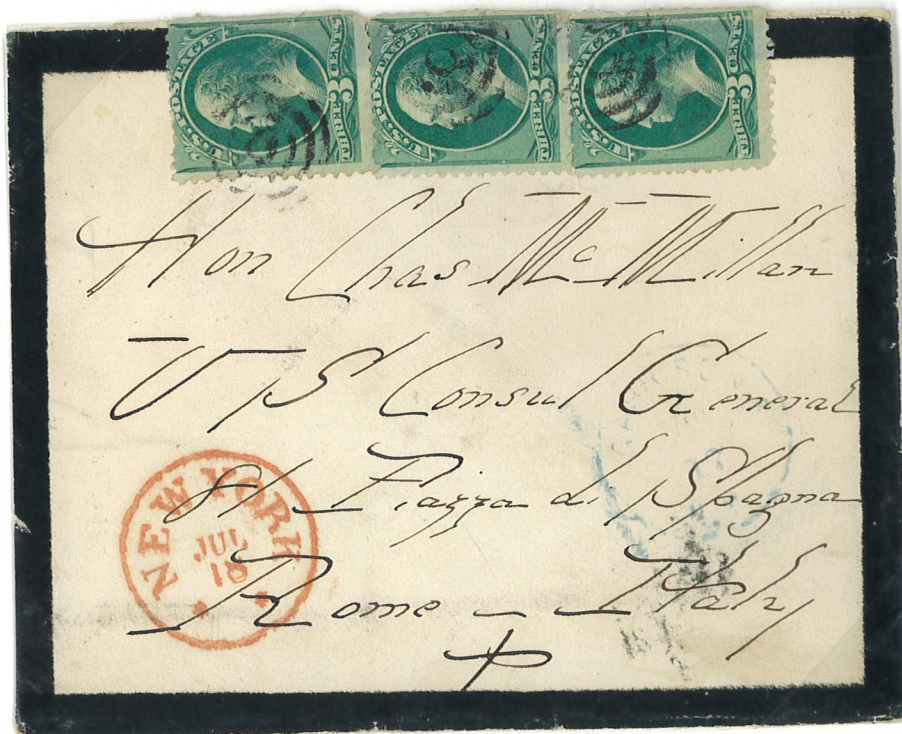 U.S. POSTAGE THREE 3 CENTS
U.S. POSTAGE THREE 3 CENTS
U.S. POSTAGE THREE 3 CENTS
Hon Chas McMillan
U S Consul General
Piazza di Spagna
Rome - Italy
NEW YORK
JUL
18